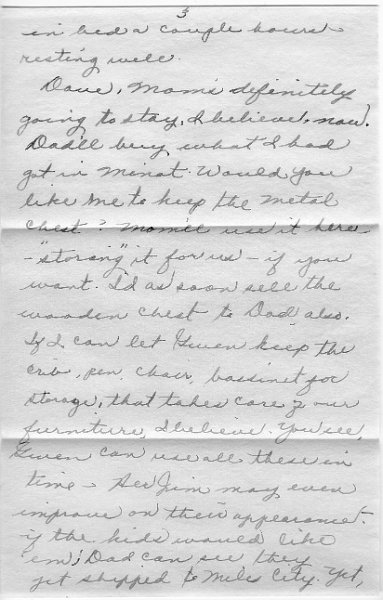 3
in bed a couple hours
resting well.
Dave, Mom's definitely
going to stay, I believe, now.
Dad'll buy what I had
got in Minot. Would you
like me to keep the metal
chest? Mom'll use it here
- "storing" it for us - if you
want. I'd as soon sell the
wooden chest to Dad also.
If I can let Gwen keep the
crib, pen, chair, bassinet for
storage, that takes care of our
furniture, I believe. You see,
Gwen can use all these in
time - Her Jim may even
improve on their appearance -
if the kids would like
'em; Dad can see they
get shipped to Miles City. Yet,